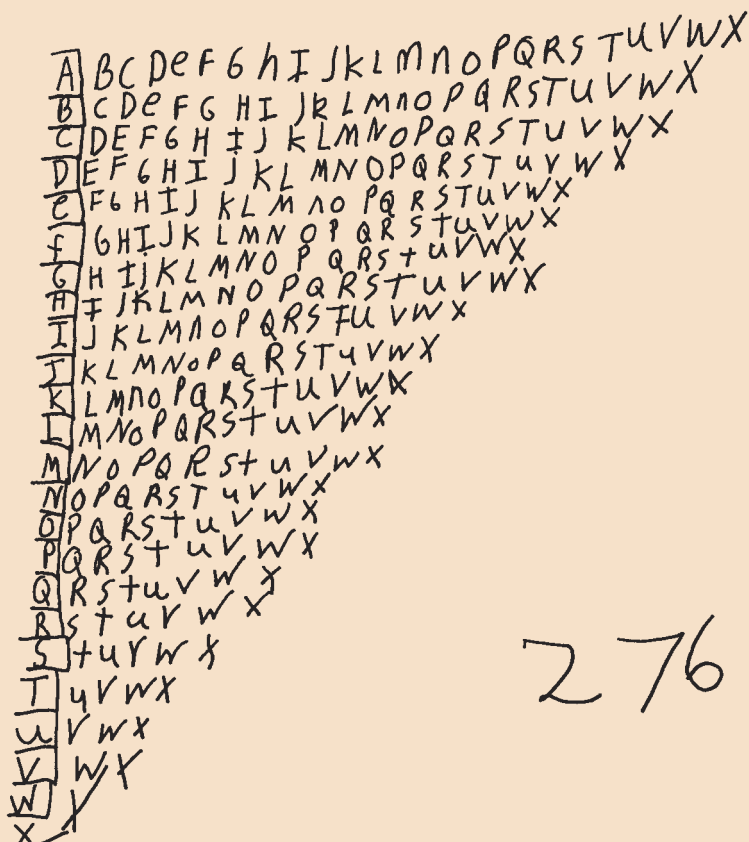 A B C D e F G h I J k L m n O P Q R S T U V W X
B C D e F G H I J k L m n O P Q R S T U V W X
C D E F G H I J K L M N O P Q R S T U V W X
D E F G H I J K L M N O P Q R S T u V W X
e F G H I J K L M n O P Q R S T U V W X
f G H I J K L M N O P Q R S t u V W X
G H I j K L M N O P Q R S t u V W X
H I J K L M N O P Q R S T u V W X
I J K L M n O P Q R S T U V W X
J K L M N O P Q R S T u V W X
K L M n O P Q R S t U V W X
L M N O P Q R S t u V W X
M N O P Q R S t u V W X
N O P Q R S T u V W X
O P Q R S t u V W X
P Q R S t u V W X
Q R S t u V W X
R S t u V W X
S t u V W X
T u V W X
u V W X
V W X
W X
X
276